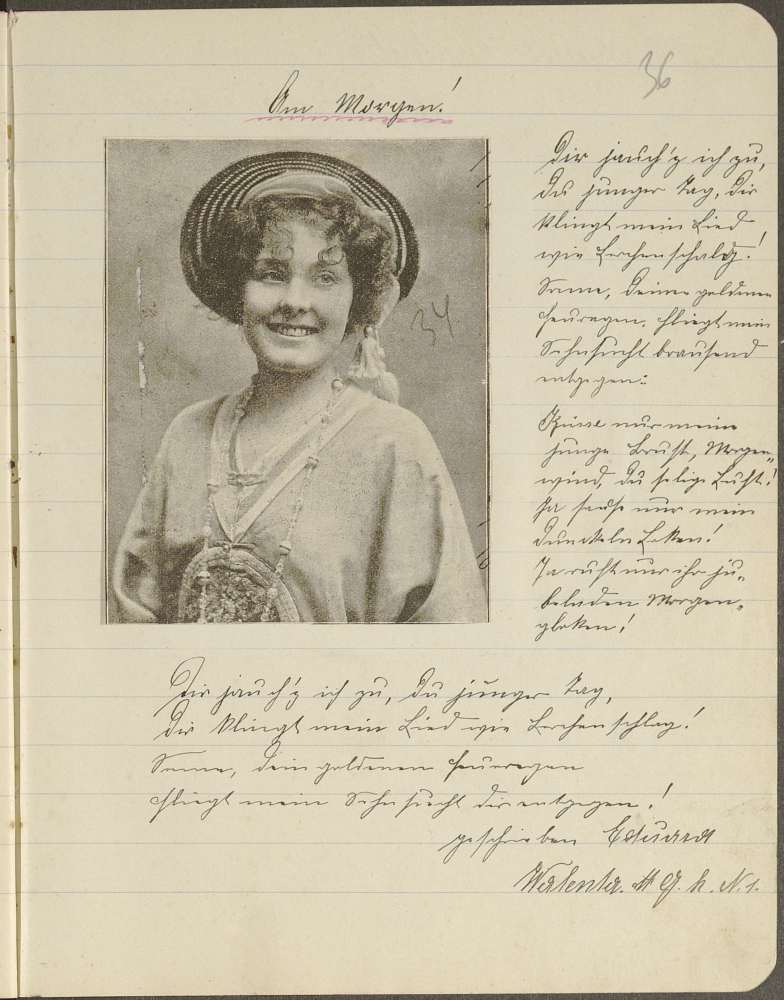 36
Am Morgen!
34
Dir jauch'z ich zu,
Du junger Tag, Dir
klingt mein Lied
wie Lerchenschlag!
Sonne, Deinen goldenen
Feuregen, fliegt mein
Sehnsucht brausend
entgegen:
nur meine
junge Brust, Morgen„
wind, du selige Luft!
Ja nur mein
Dunckeln Loken!
Ja ruft nur ihr ju„
belnden Morgen„
gloken!
Dir jauch'z ich zu, Du junger Tag,
Dir klingt mein Lied wie Lerchenschlag!
Sonne, dein goldenen Feueregen
fliegt mein Sehnsucht dir entgegen!
geschrieben Eduard
Walenta. H G. h. N. 1.